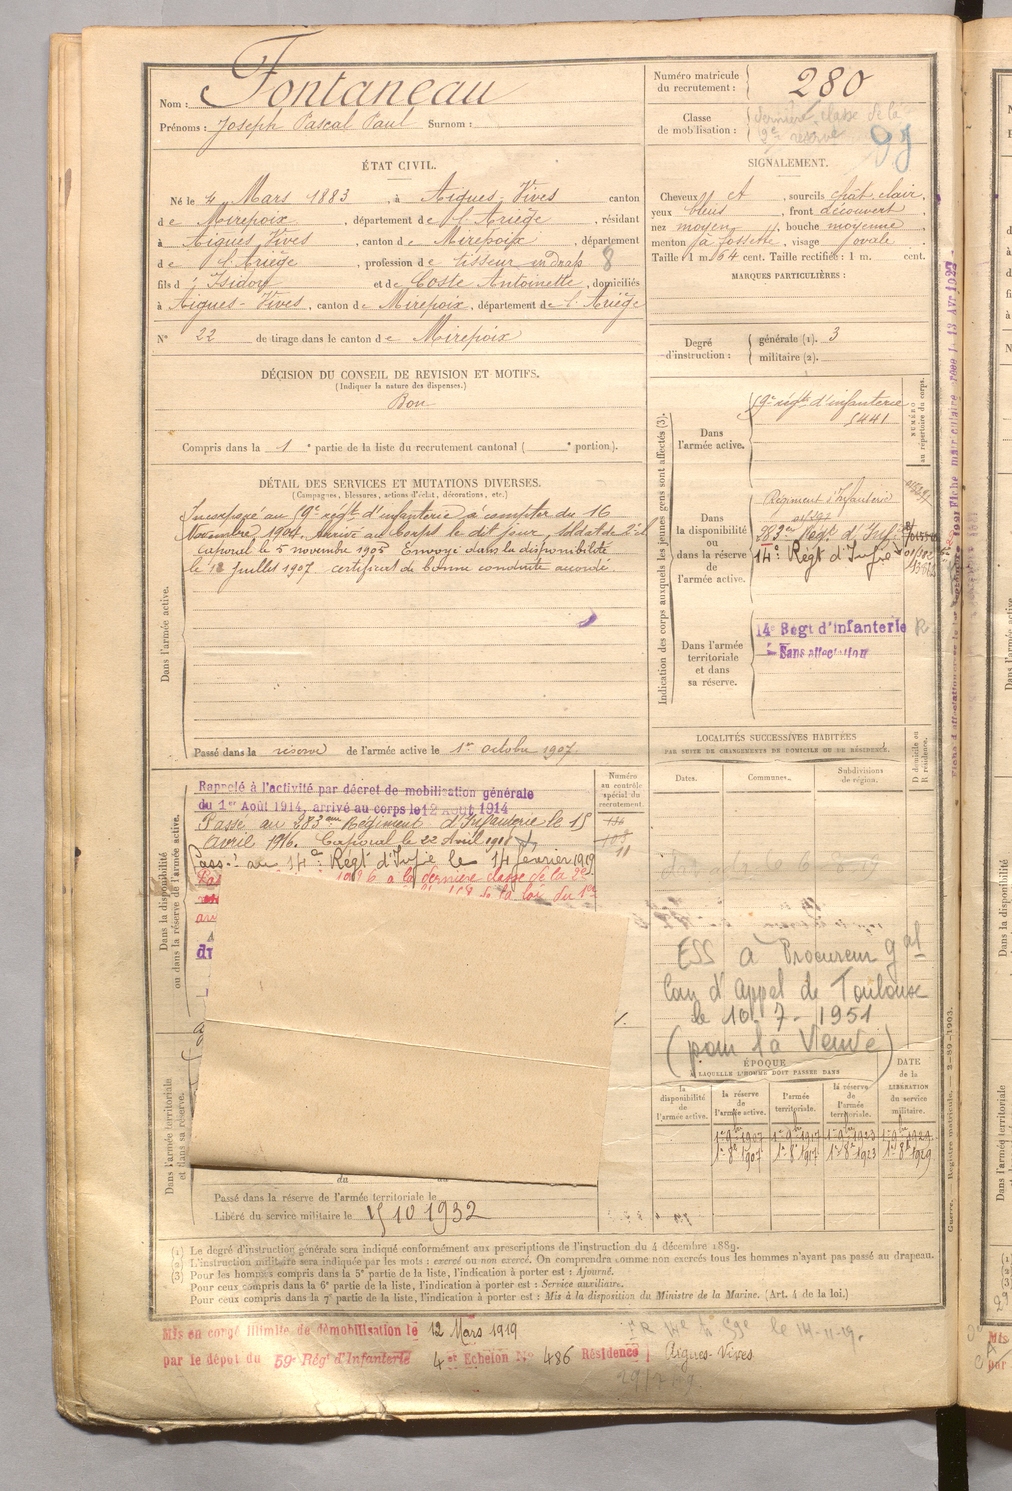 Nom : Fontaneau
Prénoms : Joseph Pascal Paul Surnom :
Numéro matricule du recrutement : 280
Classe de mobilisation : dernière classe de la 2e réserve
ÉTAT CIVIL.
Né le 4 Mars 1883, à Aigues-Vives canton
de Mirepoix, département de l'Ariège, résidant
à Aigues Vives, canton de Mirepoix, département
de l'Ariège, profession de tisseur en drap 8
fils d' Isidore et de Coste Antoinette, domiciliés
à Aigues-Vives, canton de Mirepoix, département de l'Ariège
N° 22 de tirage dans le canton de Mirepoix
SIGNALEMENT.
Cheveux et, sourcils chât. clair,
yeux bleus, front découvert
nez moyen, bouche moyenne
menton à fossette, visage ovale
Taille 1 m. 64 cent. Taille rectifiée : 1 m. cent.
MARQUES PARTICULIÈRES :
Degré d'instruction : générale (1). 3
militaire (2).
DÉCISION DU CONSEIL DE REVISION ET MOTIFS.
(Indiquer la nature des dispenses.)
Bon
Compris dans la 1e partie de la liste du recrutement cantonal ( e portion).
DÉTAIL DES SERVICES ET MUTATIONS DIVERSES.
(Campagnes, blessures, actions d'éclat, décorations, etc.)
Dans l'armée active.
Incorporé au 9e régt d'infanterie à compter du 16
Novembre 1904. Arrivé au corps le dit jour, soldat de 2e cl
Caporal le 5 novembre 1905 Envoyé dans la disponibilité
le 12 Juillet 1907 certificat de bonne conduite accordé.
Passé dans la réserve de l'armée active le 1er octobre 1907.
Indication des corps auxquels les jeunes gens sont affectés (3).
NUMÉRO au répertoire du corps.
Dans l'armée active.
9e régt d'infanterie
5441
Dans la disponibilité ou dans la réserve de l'armée active.
Régiment d'Infanterie
283me Régt d'Infie
14e Régt d'Infie
Dans l'armée territoriale et dans sa réserve.
14e Regt d'infanterie
Sans affectation
LOCALITÉS SUCCESSIVES HABITÉES
PAR SUITE DE CHANGEMENTS DE DOMICILE OU DE RÉSIDENCE.
Dates. Communes. Subdivisions de région. D domicile ou R résidence.
Dans la disponibilité ou dans la réserve de l'armée active.
Numéro au contrôle spécial du recrutement.
Rappelé à l'activité par décret de mobilisation générale
du 1er Août 1914, arrivé au corps le 12 Août 1914
Passé au 283eme Régiment d'Infanterie le 15
Avril 1916. Caporal le 22 Avril 1918
Passé au 14e Régt d'Infie le 14 février 1919
à la dernière classe de la 2e
de la loi du 1er
ESS a Procureur gal
Cour d'Appel de Toulouse
le 10-7-1951
(pour la Veuve)
ÉPOQUE
À LAQUELLE L'HOMME DOIT PASSER DANS
DATE de la LIBÉRATION du service militaire.
la disponibilité de l'armée active.
la réserve de l'armée active.
l'armée territoriale.
la réserve de l'armée territoriale.
1er 9bre 1907 1er 9bre 1917 1er 9bre 1923 1er 9bre 1929
1er 8bre 1907 1er 8bre 1917 1er 8bre 1923 1er 8bre 1929
Dans l'armée territoriale et dans sa réserve.
du
Passé dans la réserve de l'armée territoriale le
Libéré du service militaire le 15 10 1932
(1) Le degré d'instruction générale sera indiqué conformément aux prescriptions de l'instruction du 4 décembre 1889.
(2) L'instruction militaire sera indiquée par les mots : exercé ou non exercé. On comprendra comme non exercés tous les hommes n'ayant pas passé au drapeau.
(3) Pour les hommes compris dans la 5e partie de la liste, l'indication à porter est : Ajourné.
Pour ceux compris dans la 6e partie de la liste, l'indication à porter est : Service auxiliaire.
Pour ceux compris dans la 7e partie de la liste, l'indication à porter est : Mis à la disposition du Ministre de la Marine. (Art. 4 de la loi.)
Guerre. Registre matricule. — 2-89-1903.
Mis en congé illimité de démobilisation le 12 Mars 1919
par le dépôt du 59e Rég' d'Infanterie 4e Echelon No 486 Résidence Aigues-Vives